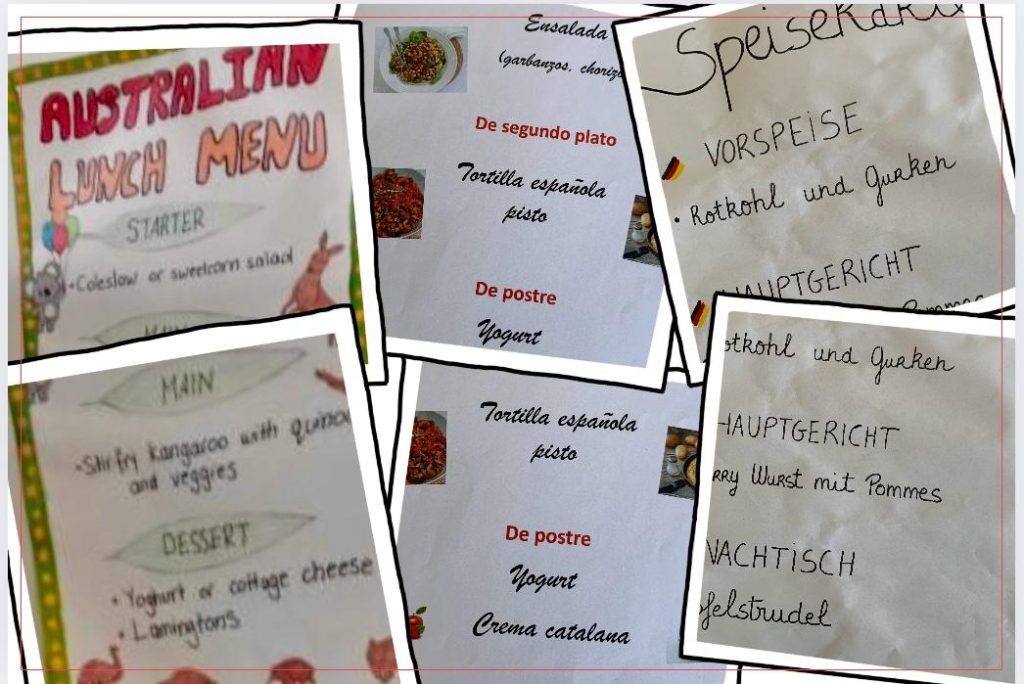 AUSTRALIAN
LUNCH MENU
STARTER
• Coleslow or sweetcorn salad
MAIN
• Stirfry kangaroo with quinoa
and veggies
DESSERT
• Yoghurt or cottage cheese
• Lamingtons
Ensalada
(garbanzos, chorizo
De segundo plato
Tortilla española
pisto
De postre
Yogurt
Tortilla española
pisto
De postre
Yogurt
Crema catalana
Speisekart
VORSPEISE
• Rotkohl und Gurken
HAUPTGERICHT
Pommes
otkohl und Gurken
HAUPTGERICHT
rry Wurst mit Pommes
NACHTISCH
felstrudel